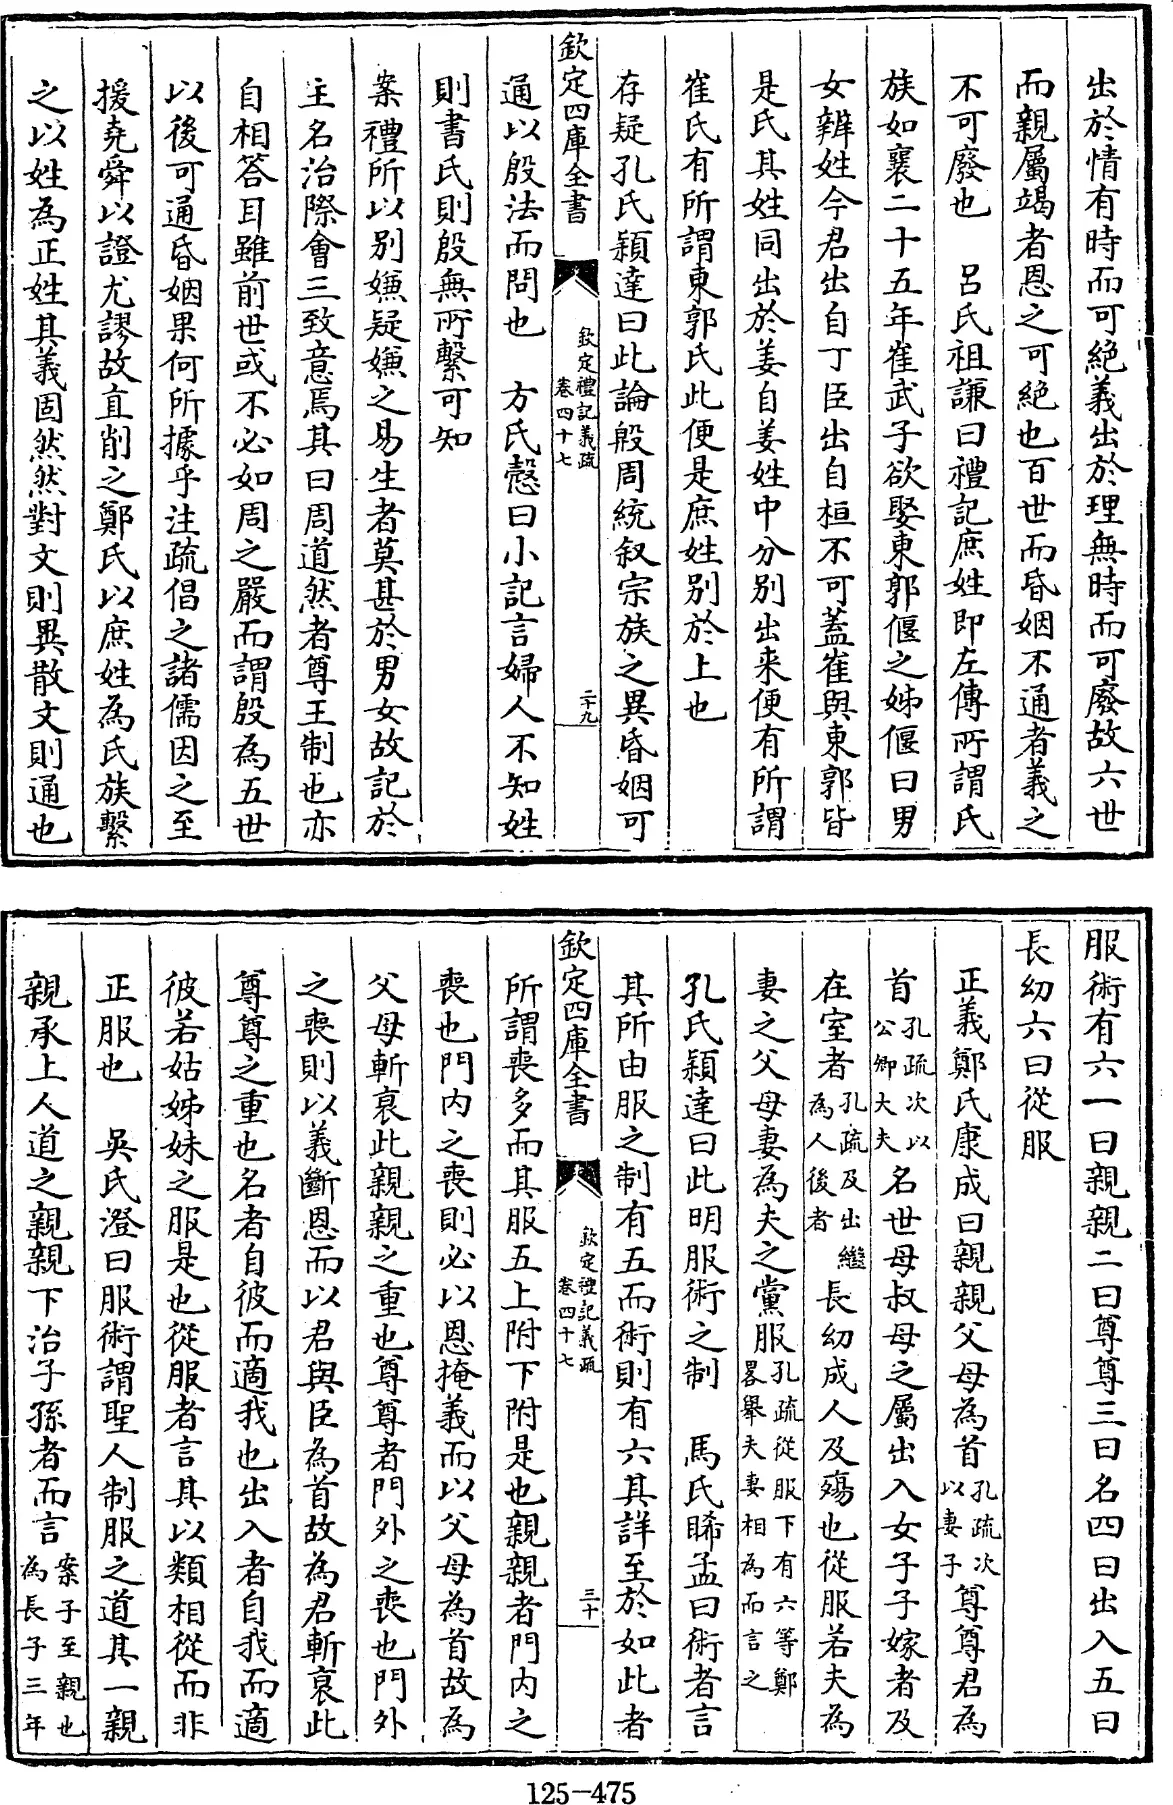 出於情有時而可絕義出於理無時而可廢故六世
而親屬竭者恩之可絕也百世而昏姻不通者義之
不可廢也　呂氏祖謙曰禮記庶姓即左傳所謂氏
族如襄二十五年崔武子欲娶東郭偃之姊偃曰男
女辨姓今君出自丁臣出自桓不可蓋崔與東郭皆
是氏其姓同出於姜自姜姓中分別出來便有所謂
崔氏有所謂東郭氏此便是庶姓別於上也
存疑孔氏穎達曰此論殷周統叙宗族之異昏姻可
欽定四庫全書　欽定禮記義疏卷四十七　二十九
通以殷法而問也　方氏慤曰小記言婦人不知姓
則書氏則殷無所繫可知
案禮所以別嫌疑嫌之易生者莫甚於男女故記於
主名治際會三致意焉其曰周道然者尊王制也亦
自相答耳雖前世或不必如周之嚴而謂殷為五世
以後可通昏姻果何所據乎注疏倡之諸儒因之至
援堯舜以證尤謬故直削之鄭氏以庶姓為氏族繫
之以姓為正姓其義固然然對文則異散文則通也
服術有六一曰親親二曰尊尊三曰名四曰出入五曰
長幼六曰從服
正義鄭氏康成曰親親父母為首孔疏次以妻子尊尊君為
首孔疏次以公卿大夫名世母叔母之屬出入女子子嫁者及
在室者孔疏及出繼為人後者長幼成人及殤也從服若夫為
妻之父母妻為夫之黨服孔疏從服下有六等鄭畧舉夫妻相為而言之
孔氏穎達曰此明服術之制　馬氏睎孟曰術者言
其所由服之制有五而術則有六其詳至於如此者
欽定四庫全書　欽定禮記義疏卷四十七　三十
所謂喪多而其服五上附下附是也親親者門內之
喪也門內之喪則必以恩掩義而以父母為首故為
父母斬衰此親親之重也尊尊者門外之喪也門外
之喪則以義斷恩而以君與臣為首故為君斬衰此
尊尊之重也名者自彼而適我也出入者自我而適
彼若姑姊妹之服是也從服者言其以類相從而非
正服也　吳氏澄曰服術謂聖人制服之道其一親
親承上人道之親親下治子孫者而言案子至親也為長子三年
125-475